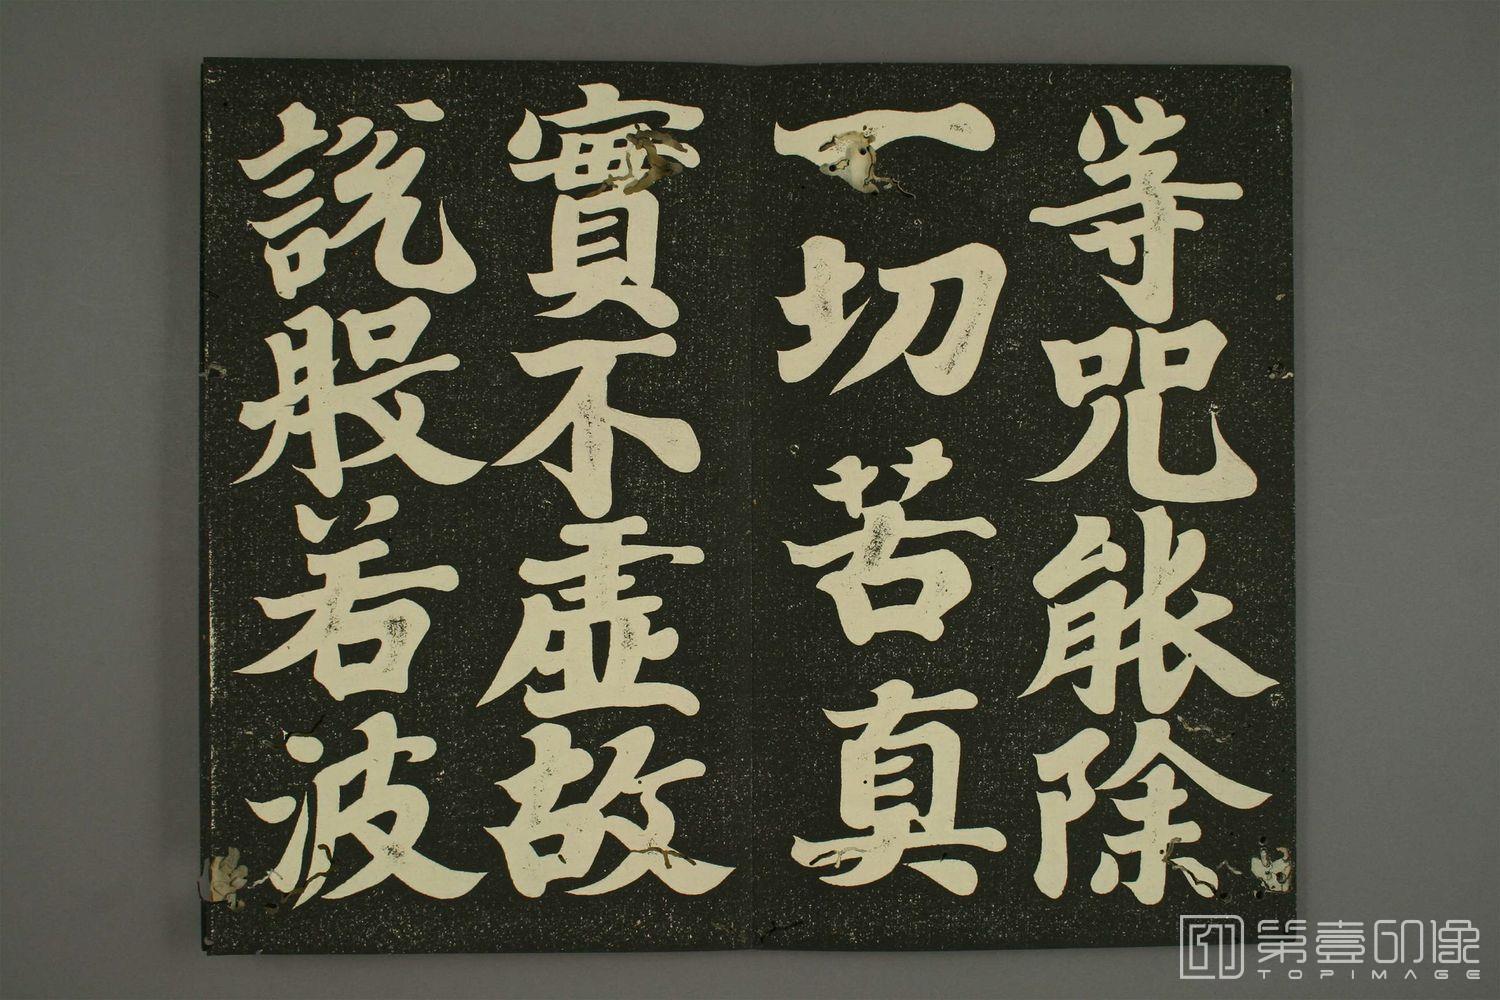 等咒能除
一切苦真
實不虛故
說般若波
第壹印像
TOPIMAGE